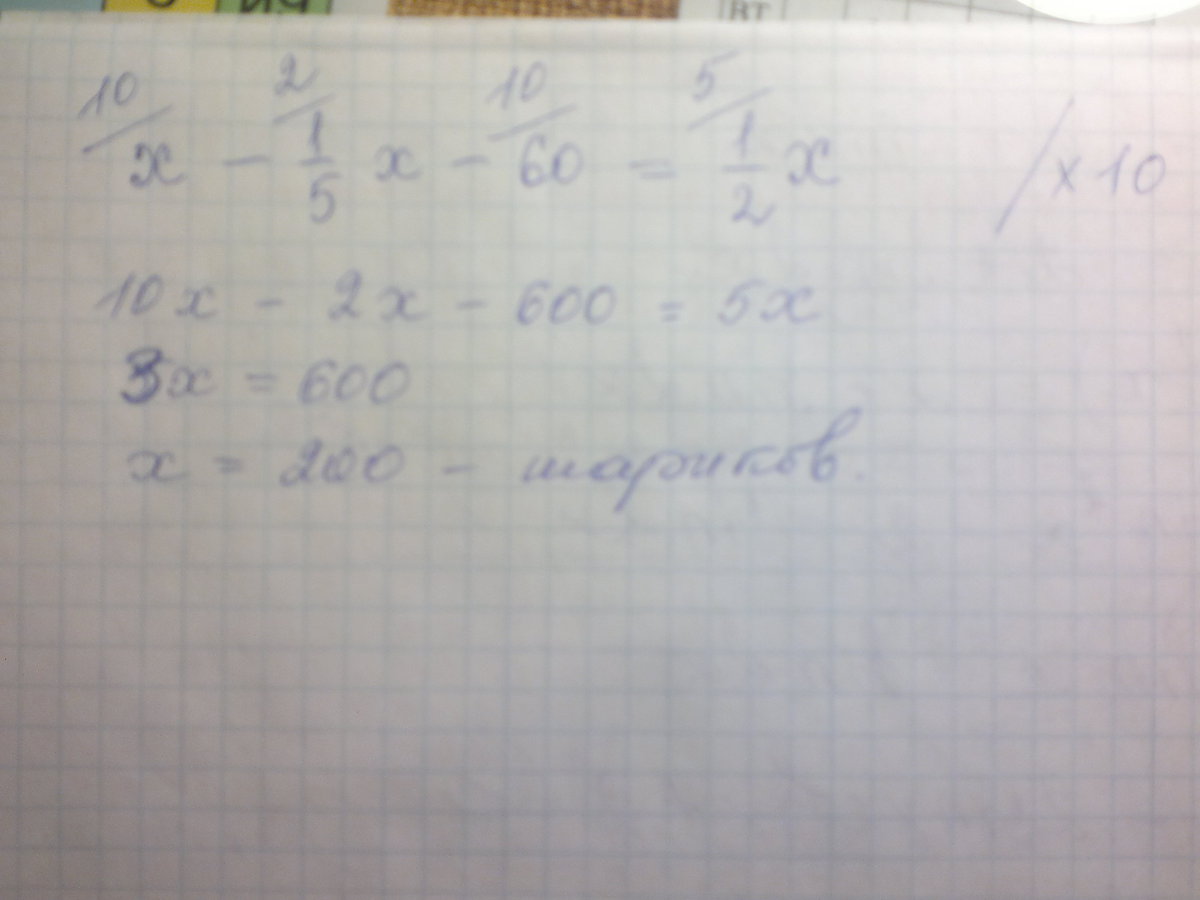 ИЧ
ВТ
10/x - 2/1/5 x - 10/60 = 5/1/2 x / x 10
10x - 2x - 600 = 5x
3x = 600
x = 200 - шариков.